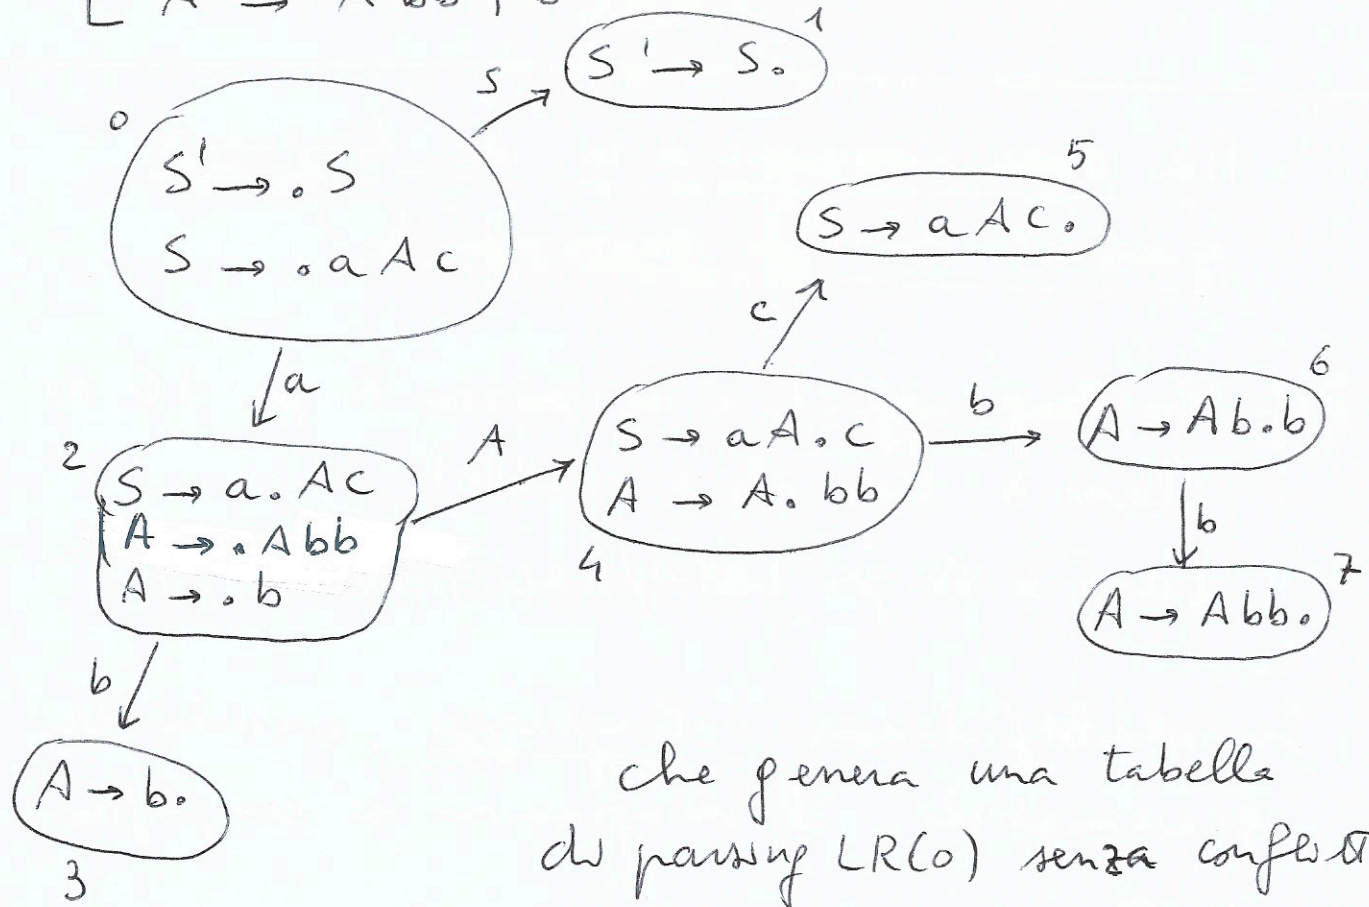 A → Abb | b
S' → S.
1
S
0
S' → .S
S → .aAc
5
S → aAc.
c
a
6
b
A → Ab.b
2
A
S → a.Ac
A → .Abb
A → .b
S → aA.c
A → A.bb
4
b
7
A → Abb.
b
A → b.
3
che genera una tabella
di parsing LR(0) senza conflitti